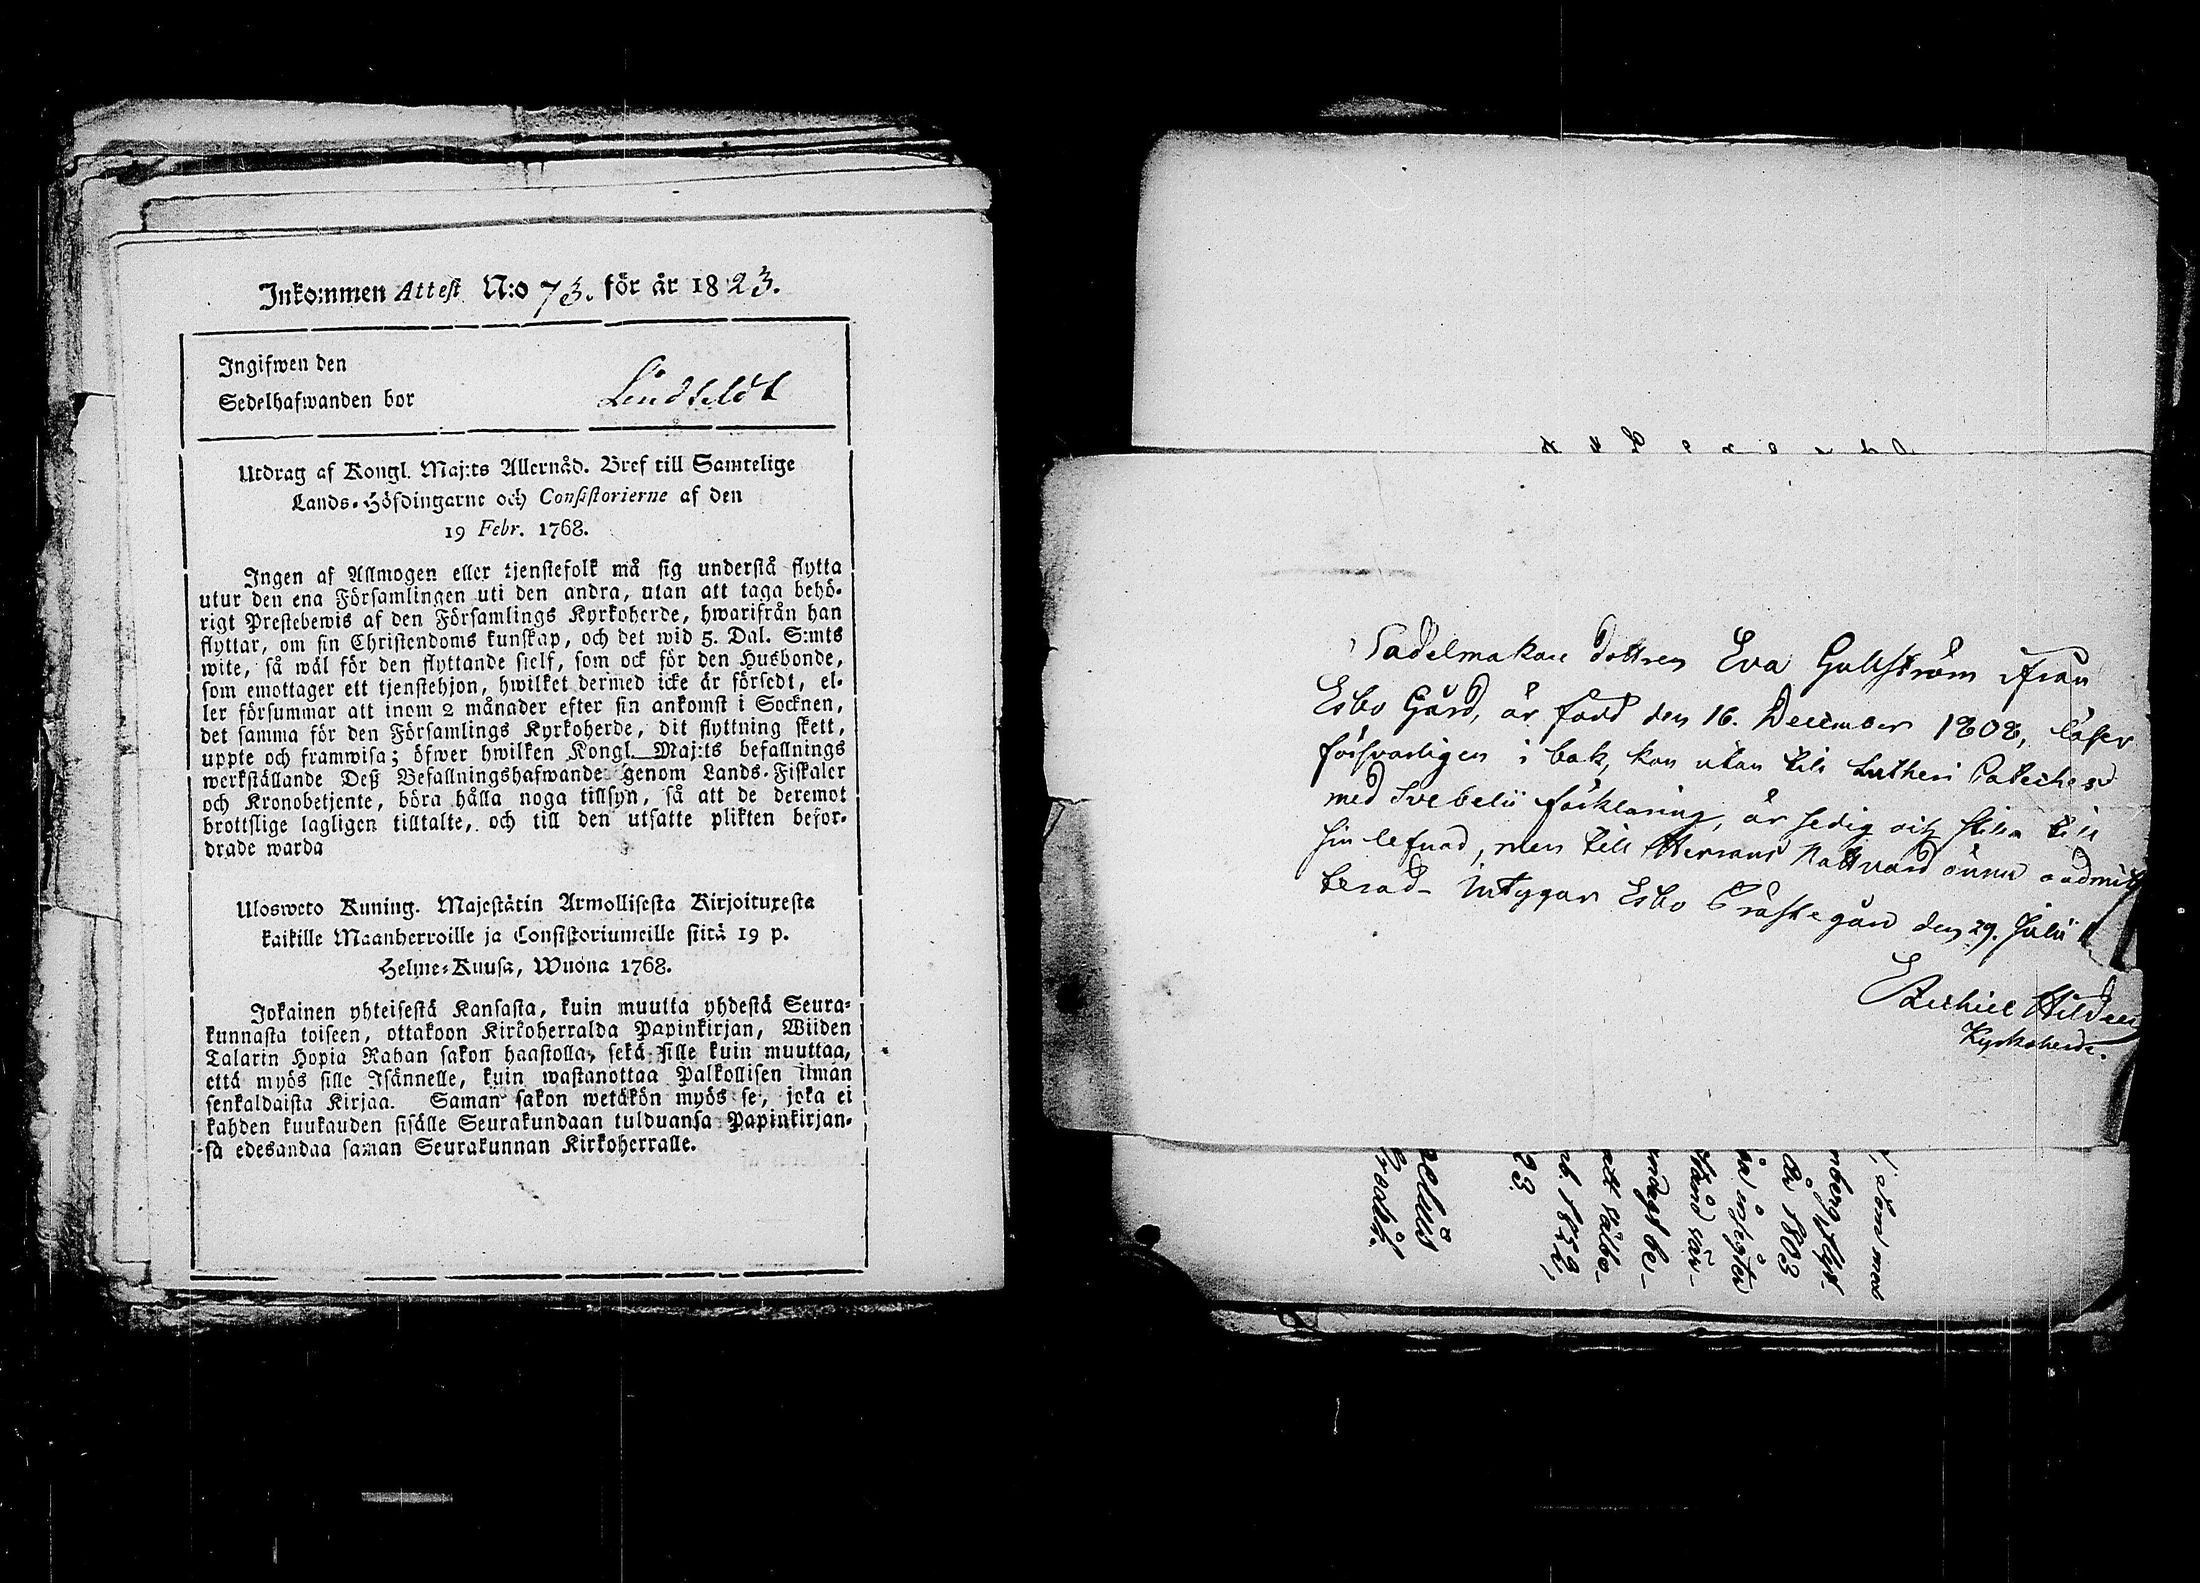 Inkommen Attest N:o 73. för år 1823.
Ingifwen den
Sedelhafwanden bor Lindfeldt
Utdrag af Kongl. Maj:ts Allernåd. Bref till Samtelige
Lands-Höfdingarne och Consistorierne af den
19 Febr. 1768.
Ingen af Allmogen eller tjenstefolk må sig understå flytta
utur den ena Församlingen uti den andra, utan att taga behö-
rigt Prestebewis af den Församlings Kyrkoherde, hwarifrån han
flyttar, om sin Christendoms kunskap, och det wid 5. Dal. S:mts
wite, så wäl för den flyttande sielf, som ock för den Husbonde,
som emottager ett tjenstehjon, hwilket dermed icke är försedt, el-
ler försummar att inom 2 månader efter sin ankomst i Socknen,
det samma för den Församlings Kyrkoherde, dit flyttning skett,
uppte och framwisa; öfwer hwilken Kongl. Maj:ts befallnings
werkställande Deß Befallningshafwande genom Lands-Fiskaler
och Kronobetjente, böra hålla noga tillsyn, så att de deremot
brottslige lagligen tilltalte, och till den utsatte plikten befor-
drade warda
Ulosweto Kuning. Majestätin Armollisesta Kirjoituxesta
kaikille Maanherroille ja Consistoriumeille siitä 19 p.
Helme-Kuusa, Wuona 1768.
Jokainen yhteisestä Kansasta, kuin muutta yhdestä Seura-
kunnasta toiseen, ottakoon Kirkoherralda Papinkirjan, Wiiden
Talarin Hopia Rahan sakon haastolla, sekä sille kuin muuttaa,
että myös sille Isännelle, kuin wastanottaa Palkollisen ilman
senkaldaista Kirjaa. Saman sakon wetäkön myös se, joka ei
kahden kuukauden sisälle Seurakundaan tulduansa Papinkirjan-
sa edesandaa saman Seurakunnan Kirkoherralle.
Sadelmakare dottren Eva Gullström ifrån
Esbo Gård, är född den 16. December 1808, läser
försvarligen i bok, kan utan till Lutheri Cateches
med Svebelii förklaring, är sedig och stilla till
sin lefnad, men till Herrans Nattvard ännu oadmit
terad. Intygar Esbo Prästegård den 29. Julii
Ezechiel Hildeen
Kyrkoherde.
, som med
nberg, flyt
år 1803
på insigter
stånd vär-
ndags be-
att välbe-
b. 1822,
23.
nelius
Broobit.